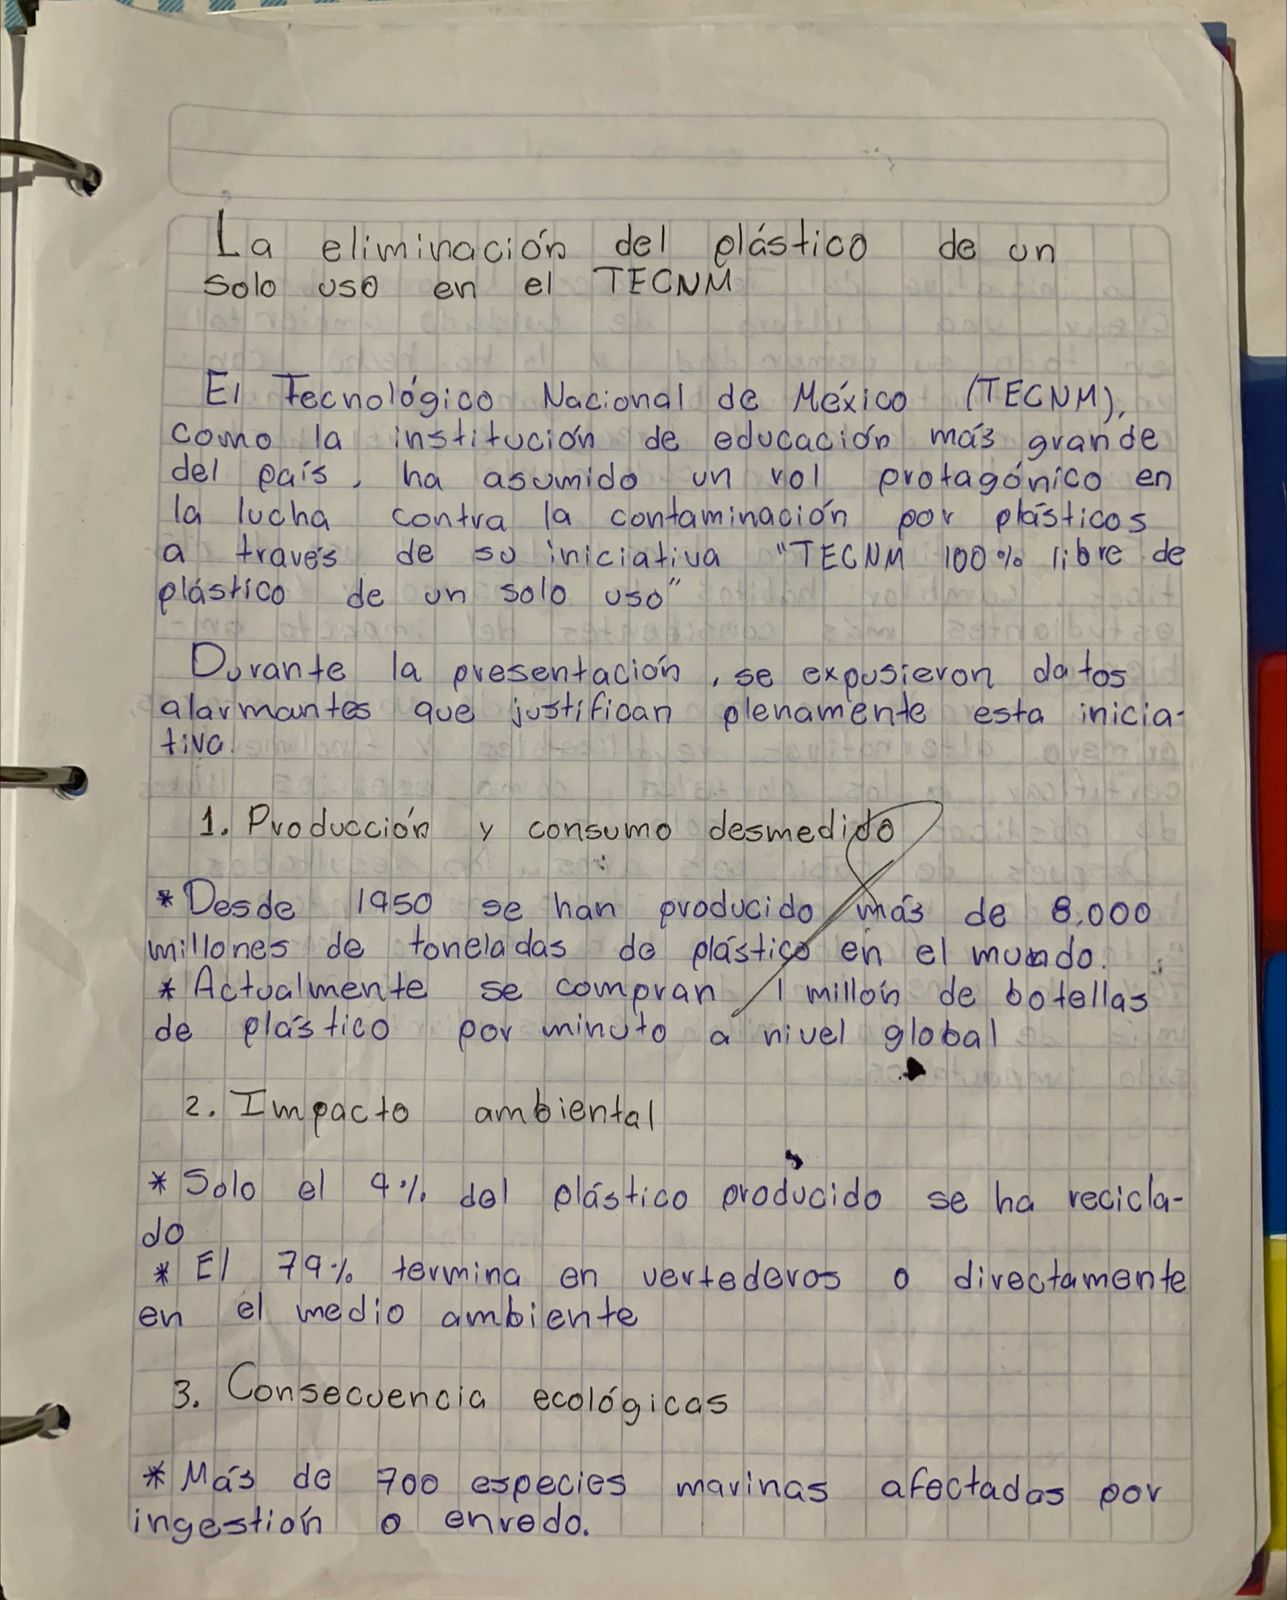 La eliminación del plástico de un
solo uso en el TECNM
El Tecnológico Nacional de México (TECNM),
como la institución de educación más grande
del país, ha asumido un rol protagónico en
la lucha contra la contaminación por plásticos
a través de su iniciativa "TECNM 100% libre de
plástico de un solo uso"
Durante la presentación, se expusieron datos
alarmantes que justifican plenamente esta inicia-
tiva.
1. Producción y consumo desmedido
* Desde 1950 se han producido más de 8,000
millones de toneladas de plástico en el mundo.
* Actualmente se compran 1 millón de botellas
de plástico por minuto a nivel global
2. Impacto ambiental
* Solo el 9% del plástico producido se ha recicla-
do
* El 79% termina en vertederos o directamente
en el medio ambiente
3. Consecuencia ecológicas
* Más de 700 especies marinas afectadas por
ingestión o enredo.